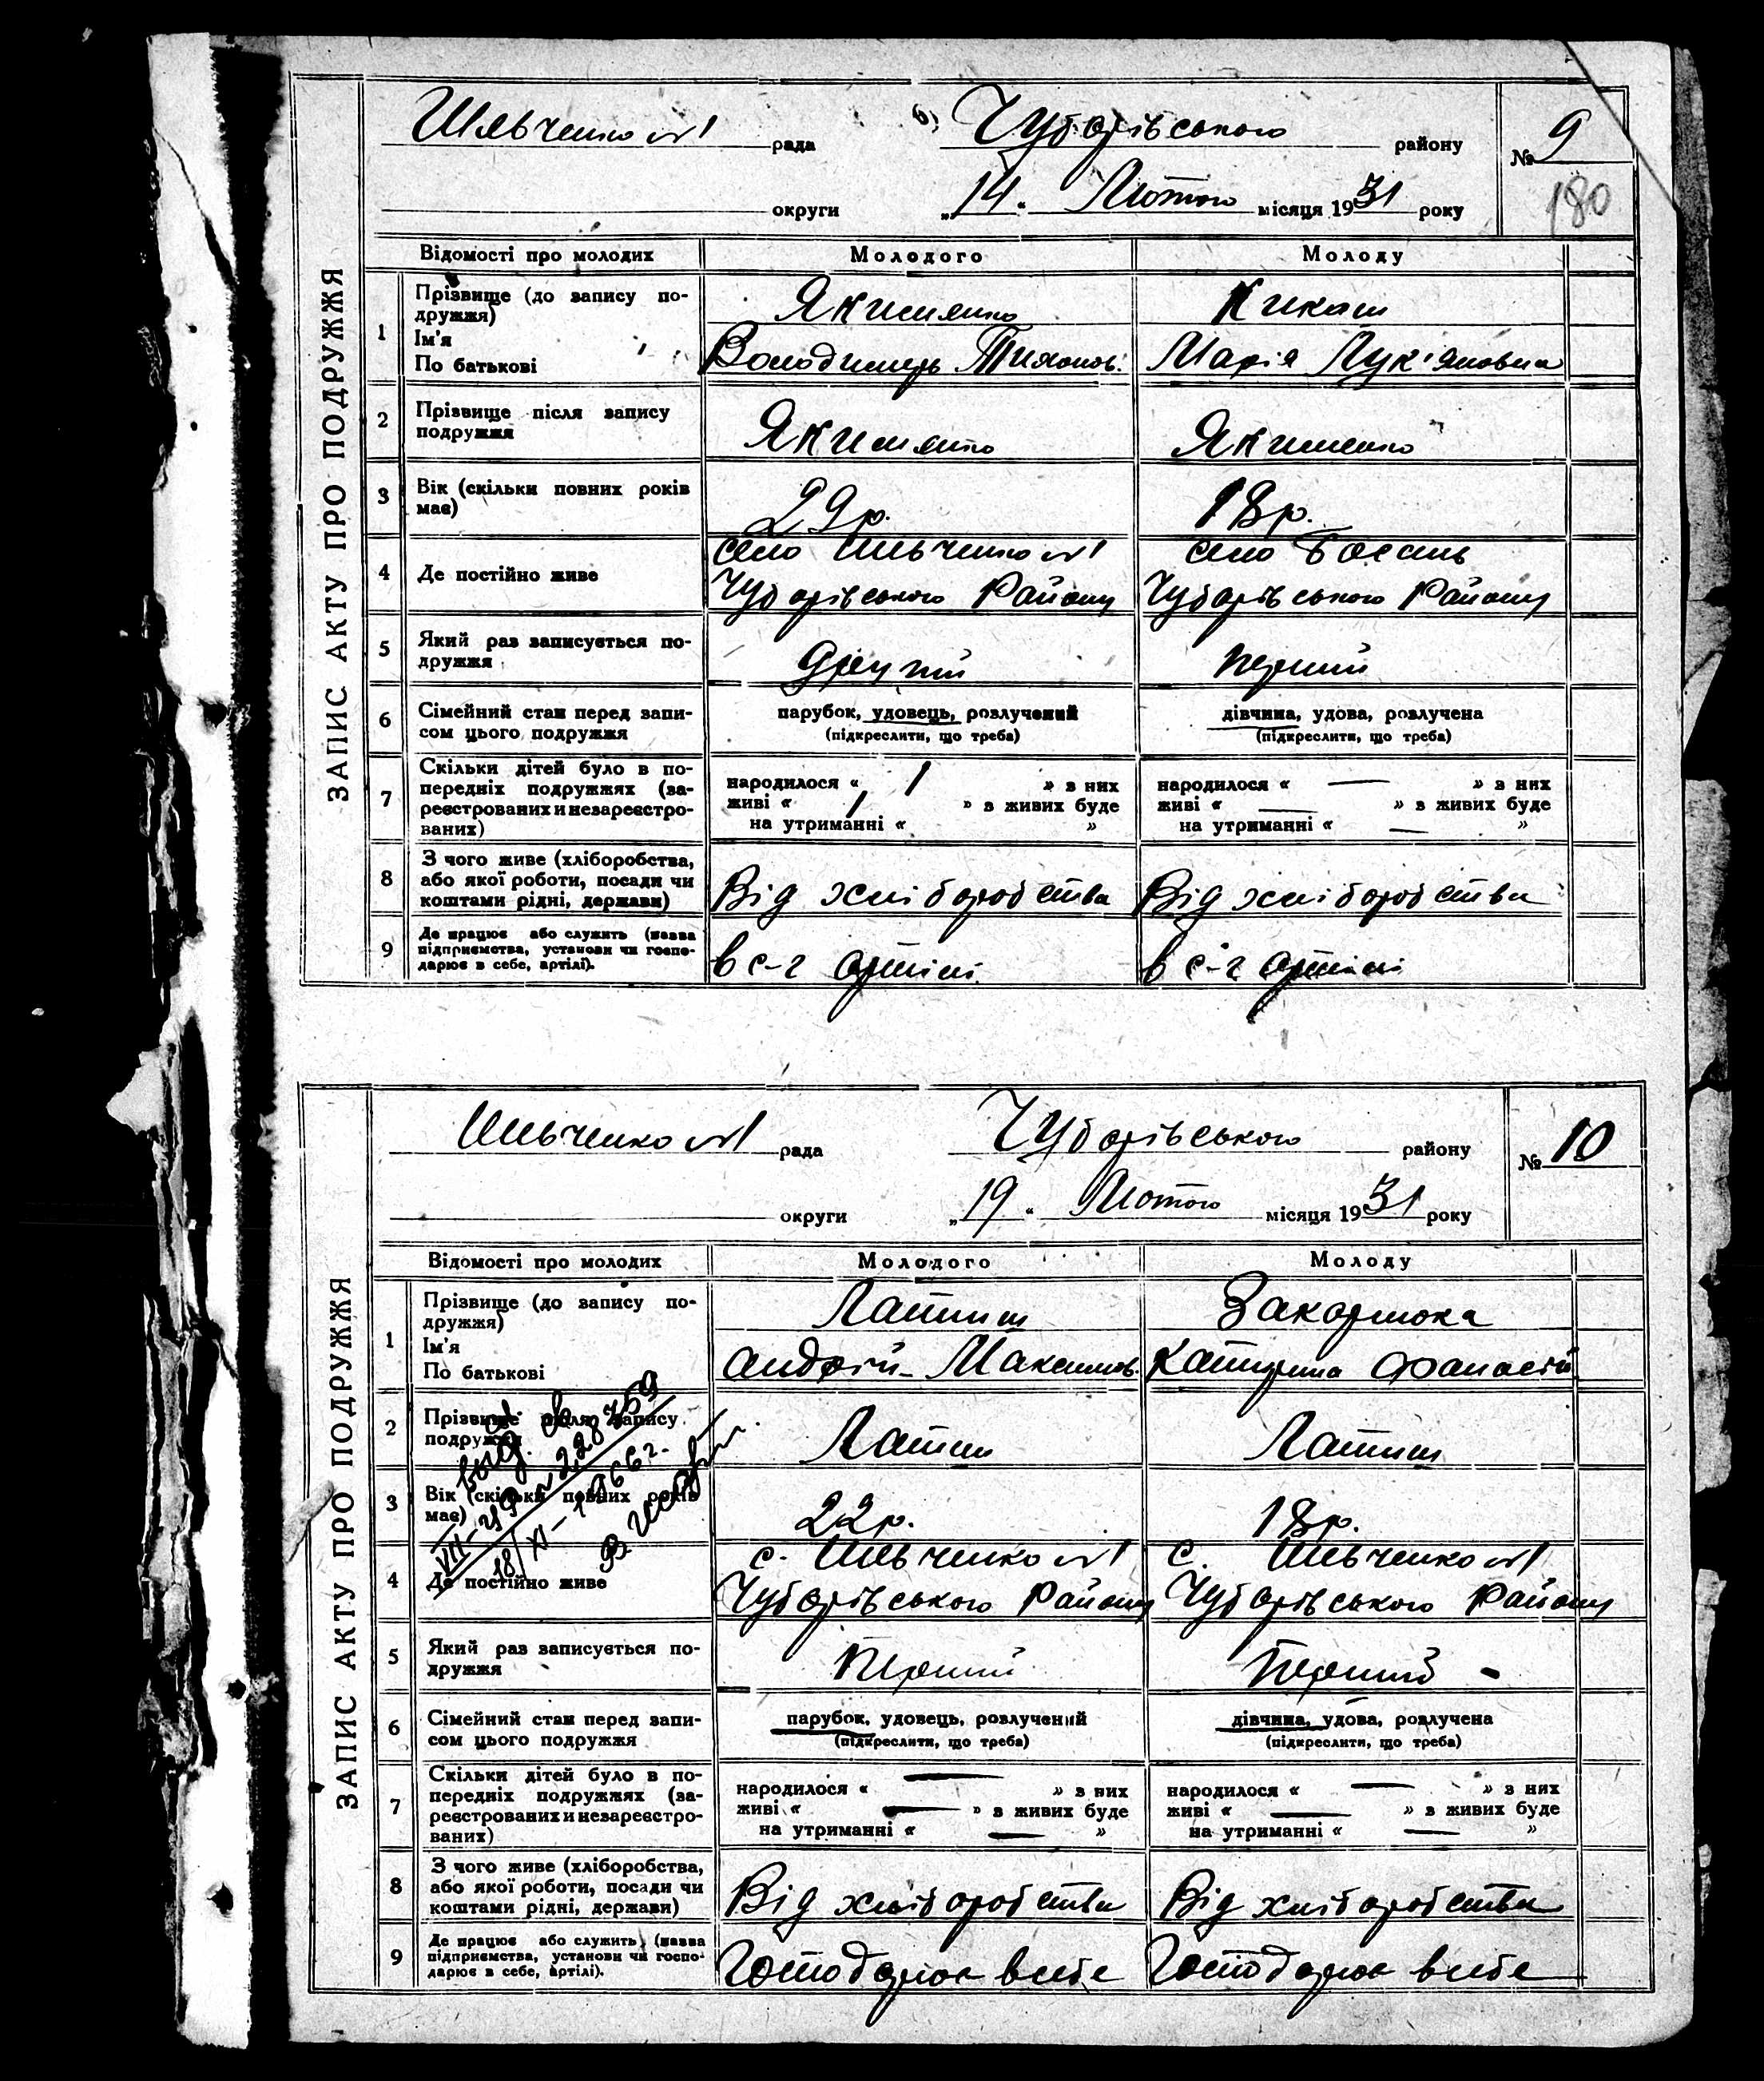 Шевченко №1 рада Чубарівського району № 9
округи „14“ Лютого місяця 1931 року 180
ЗАПИС АКТУ ПРО ПОДРУЖЖЯ
Відомості про молодих Молодого Молоду
1 Прізвище (до запису по- Якименко Кикот
дружжя)
Ім'я Володимир Тихонов. Марія Лук'яновна
По батькові
2 Прізвище після запису Якименко Якименко
подружжя
3 Вік (скільки повних років 29р. 18р.
має)
село Шевченко №1 село Басань
4 Де постійно живе Чубарівського Району Чубарівського Району
5 Який раз записується по- Другий Перший
дружжя
6 Сімейний стан перед запи- парубок, удовець, розлучений дівчина, удова, розлучена
сом цього подружжя (підкреслити, що треба) (підкреслити, що треба)
7 Скільки дітей було в по- народилося « 1 » з них народилося « — » з них
передніх подружжях (за- живі « 1 » з живих буде живі « — » з живих буде
реєстрованих и незареєстро- на утриманні « » на утриманні « — »
ваних)
8 З чого живе (хліборобства, Від хліборобства Від хліборобства
або якої роботи, посади чи
коштами рідні, держави)
9 Де працює або служить (назва в с-г артілі в с-г артілі
підприємства, установи чи госпо-
дарює в себе, артілі).
Шевченко №1 рада Чубарівського району № 10
округи „19“ Лютого місяця 1931 року
ЗАПИС АКТУ ПРО ПОДРУЖЖЯ
Відомості про молодих Молодого Молоду
1 Прізвище (до запису по- Латиш Закарлюка
дружжя)
Ім'я Андрій Максимов. Катирина Фанасій.
По батькові
2 Прізвище після запису Латиш Латиш
подружжя
выд. св.
VII-УР № 228759
18/XI-1966г.
3 Вік (скільки повних років 22р. 18р.
має)
с. Шевченко №1 с. Шевченко №1
4 Де постійно живе Чубарівського Району Чубарівського Району
5 Який раз записується по- Перший Перший
дружжя
6 Сімейний стан перед запи- парубок, удовець, розлучений дівчина, удова, розлучена
сом цього подружжя (підкреслити, що треба) (підкреслити, що треба)
7 Скільки дітей було в по- народилося « — » з них народилося « — » з них
передніх подружжях (за- живі « — » з живих буде живі « — » з живих буде
реєстрованих и незареєстро- на утриманні « — » на утриманні « — »
ваних)
8 З чого живе (хліборобства, Від хліборобства Від хліборобства
або якої роботи, посади чи
коштами рідні, держави)
9 Де працює або служить (назва Господарює в себе Господарює в себе
підприємства, установи чи госпо-
дарює в себе, артілі).